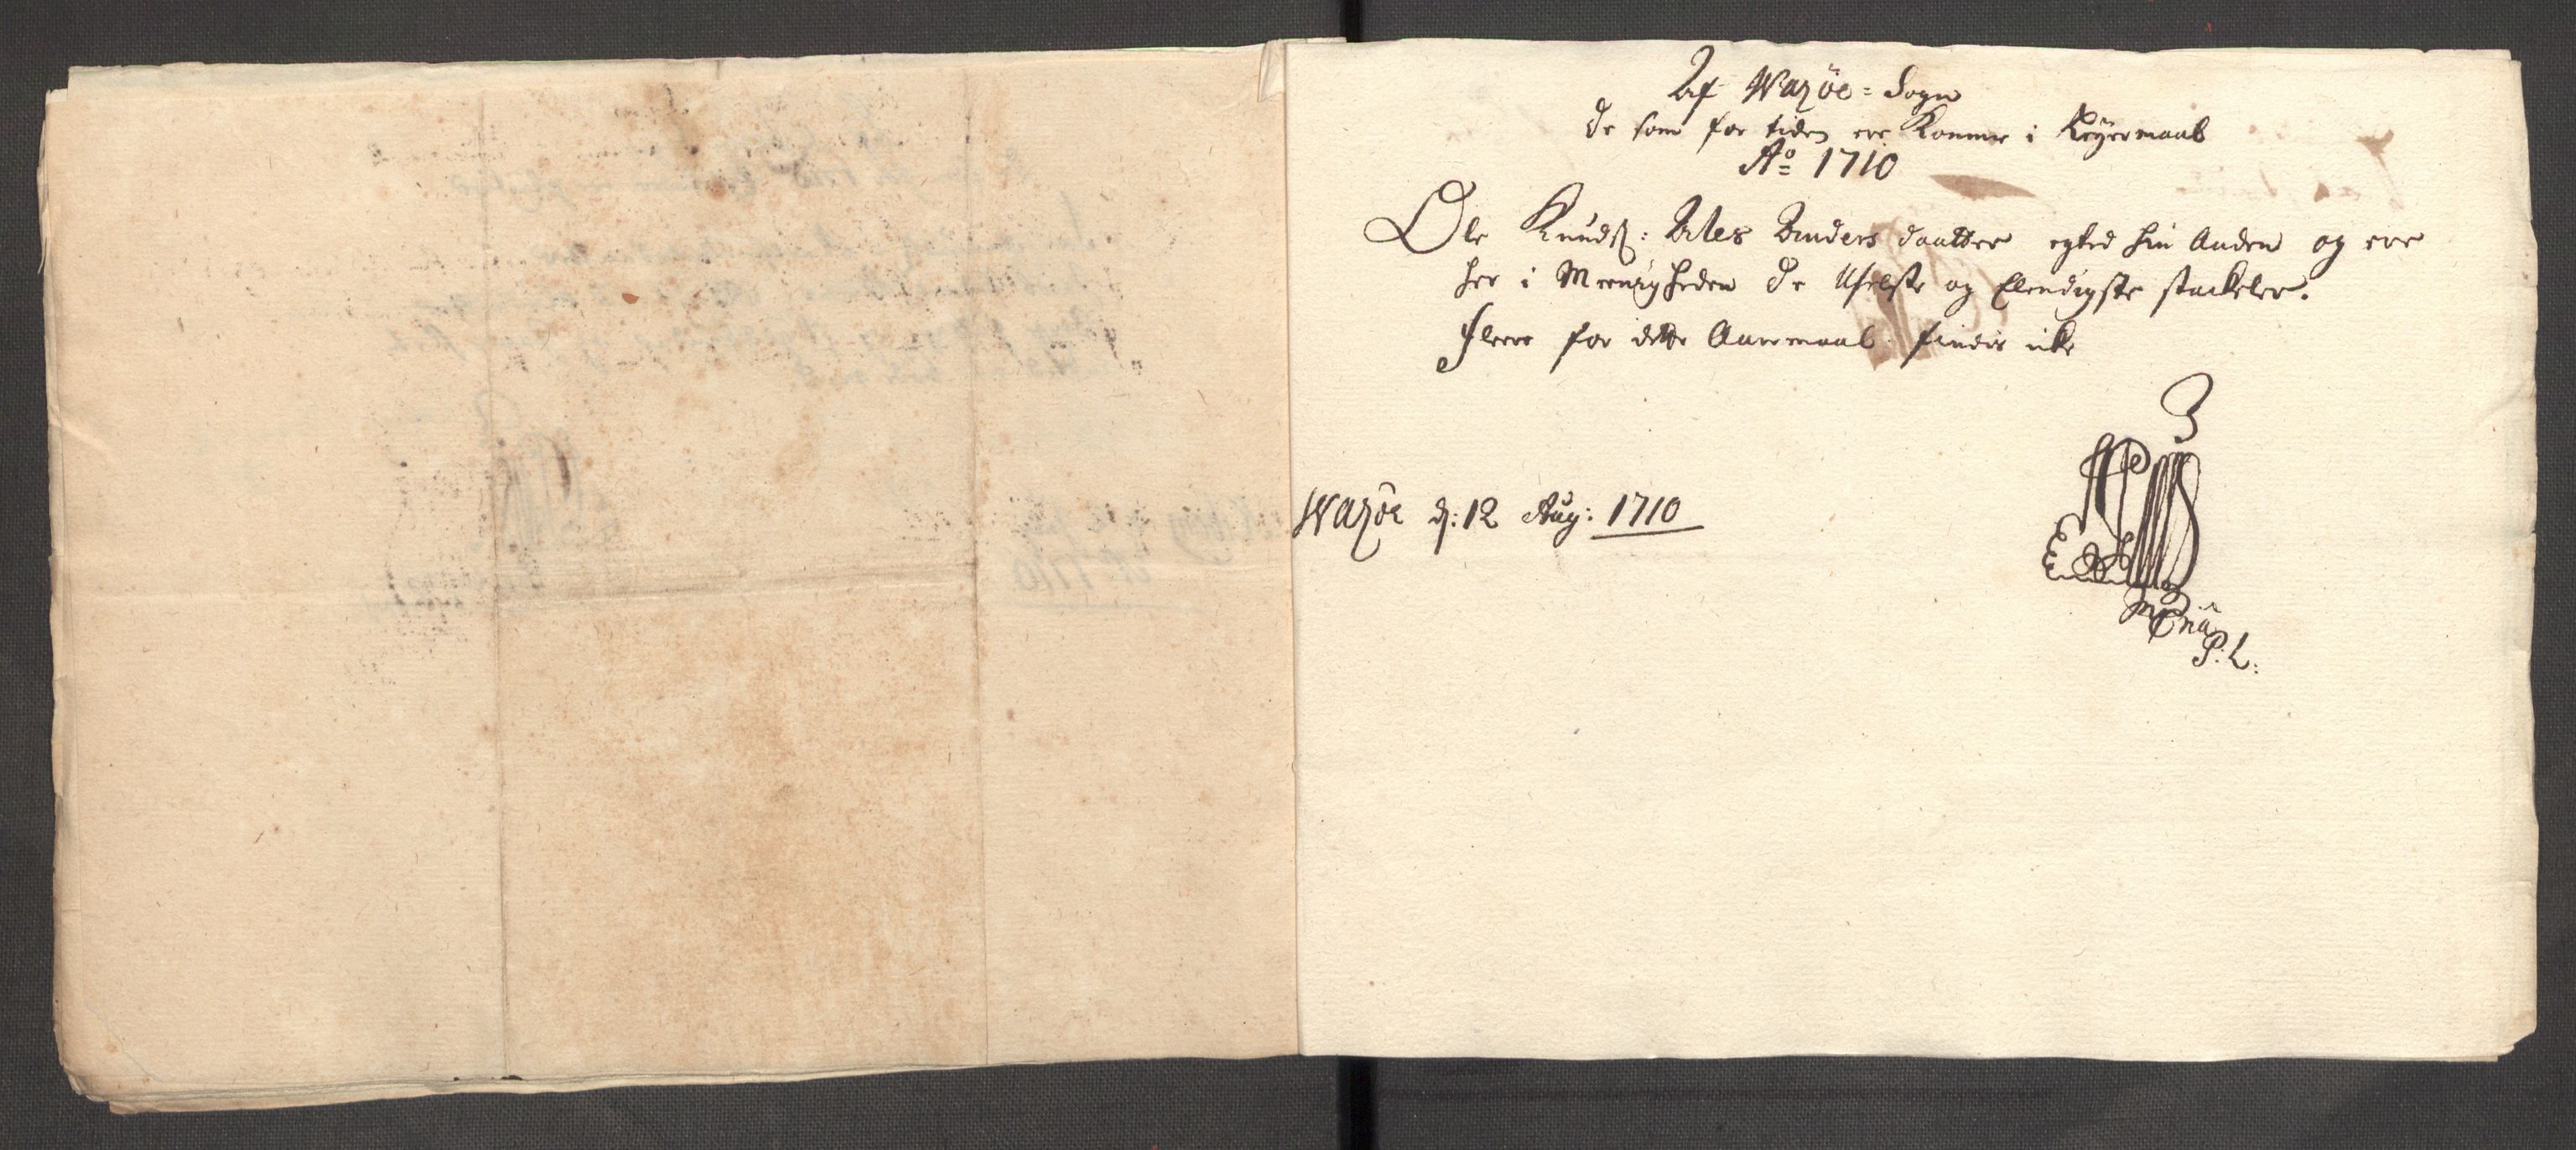 Af Wazöe = Sogn
de som for tiden ere Komne i Leyermaal
Ao 1710
Ole Knuds: Ales Anders daatter egted hin Anden og ere
her i Meenigheden de Uselste og Elendigste stackeler.
Fleere for dette Aaremaal findis icke
Wazöe d: 12 Aug: 1710
P: L: